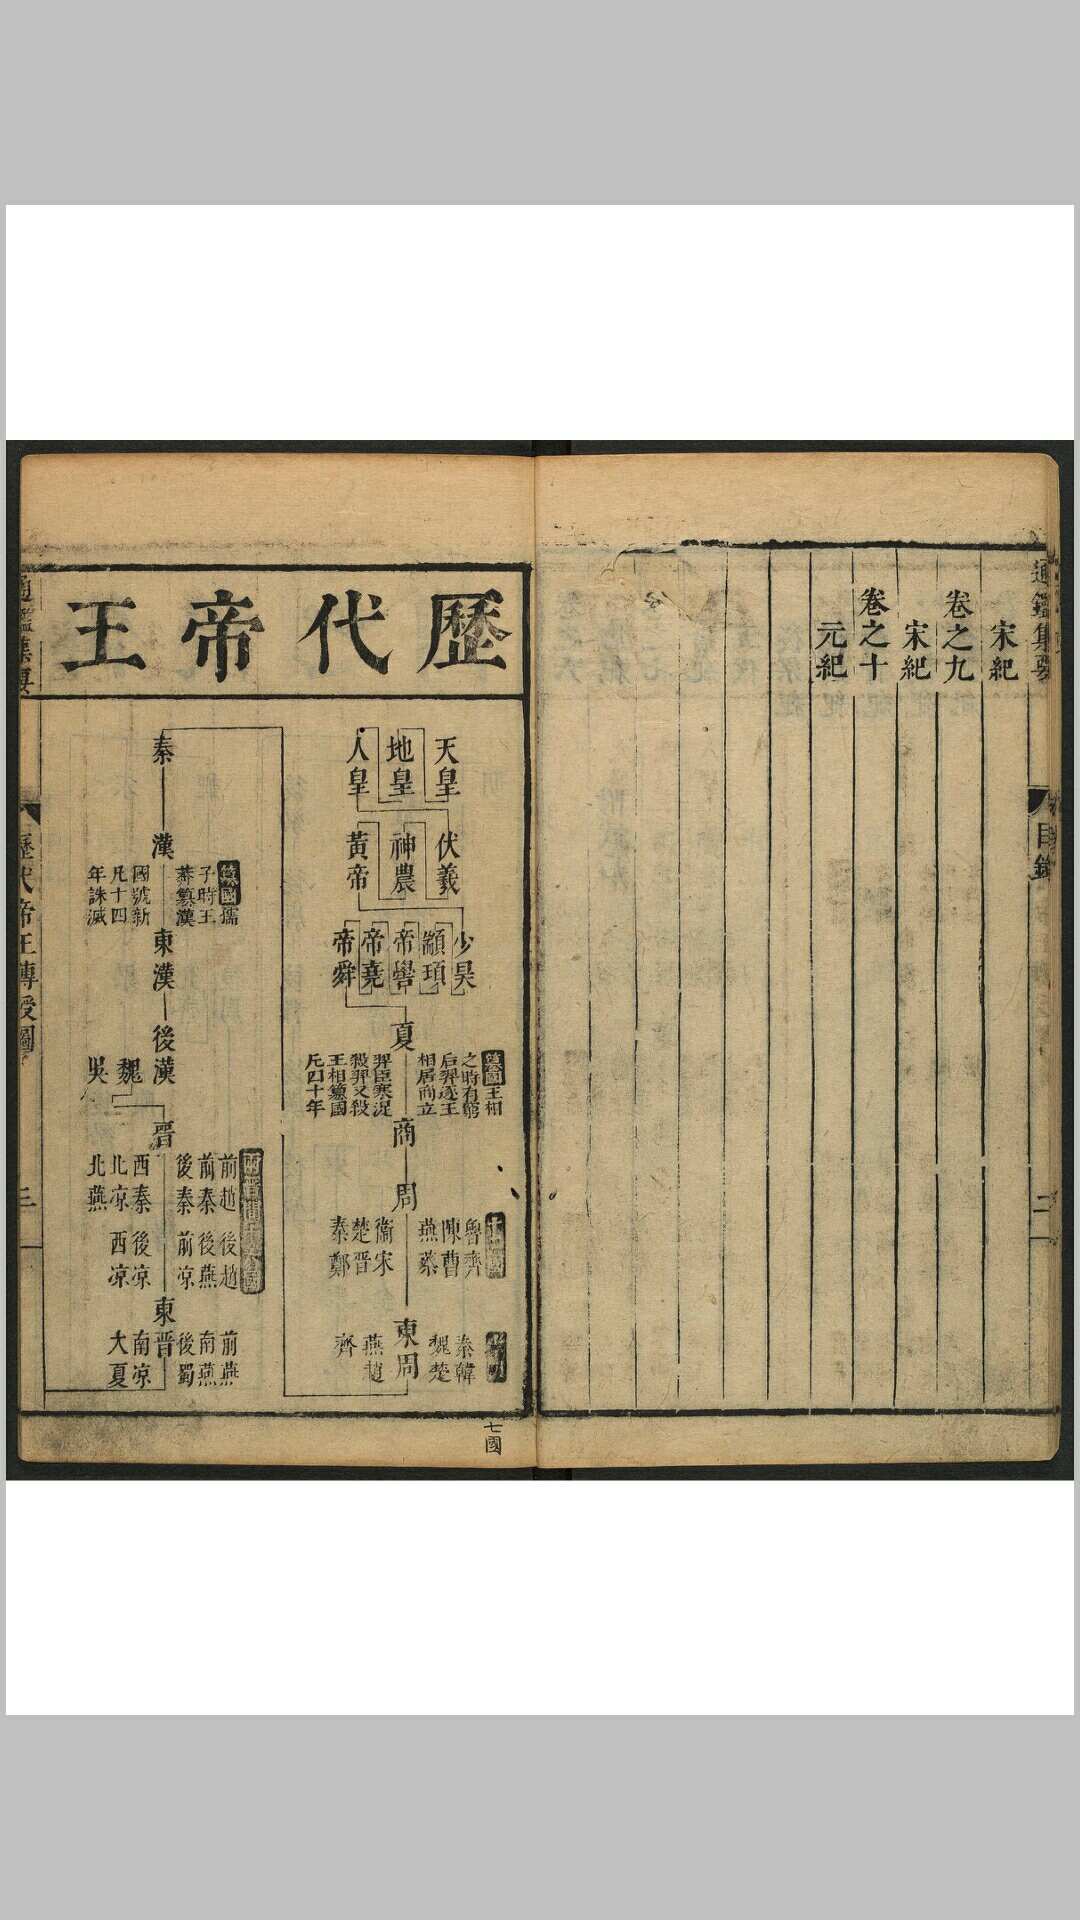 通鑑集要
目錄
二
宋紀
卷之九
宋紀
卷之十
元紀
歷代帝王
天皇
地皇
人皇
伏羲
神農
黃帝
少昊
顓頊
帝嚳
帝堯
帝舜
夏
篡國王相
之時有窮
后羿逐王
相居商立
羿臣寒浞
殺羿又殺
王相篡國
凡四十年
商
周
十二國
魯齊
陳曹
燕蔡
衞宋
楚晉
秦鄭
東周
秦韓
魏楚
燕趙
齊
七國
秦
漢
篡國孺
子時王
莽篡漢
國號新
凡十四
年誅滅
東漢
後漢
魏
吳
晉
兩晉間十六國
前趙 後趙 前燕
前秦 後燕 南燕
後秦 前凉 後蜀
西秦 後凉 南凉
北凉 西凉 大夏
北燕
東晉
通鑑集要
歷代帝王傳授圖
三